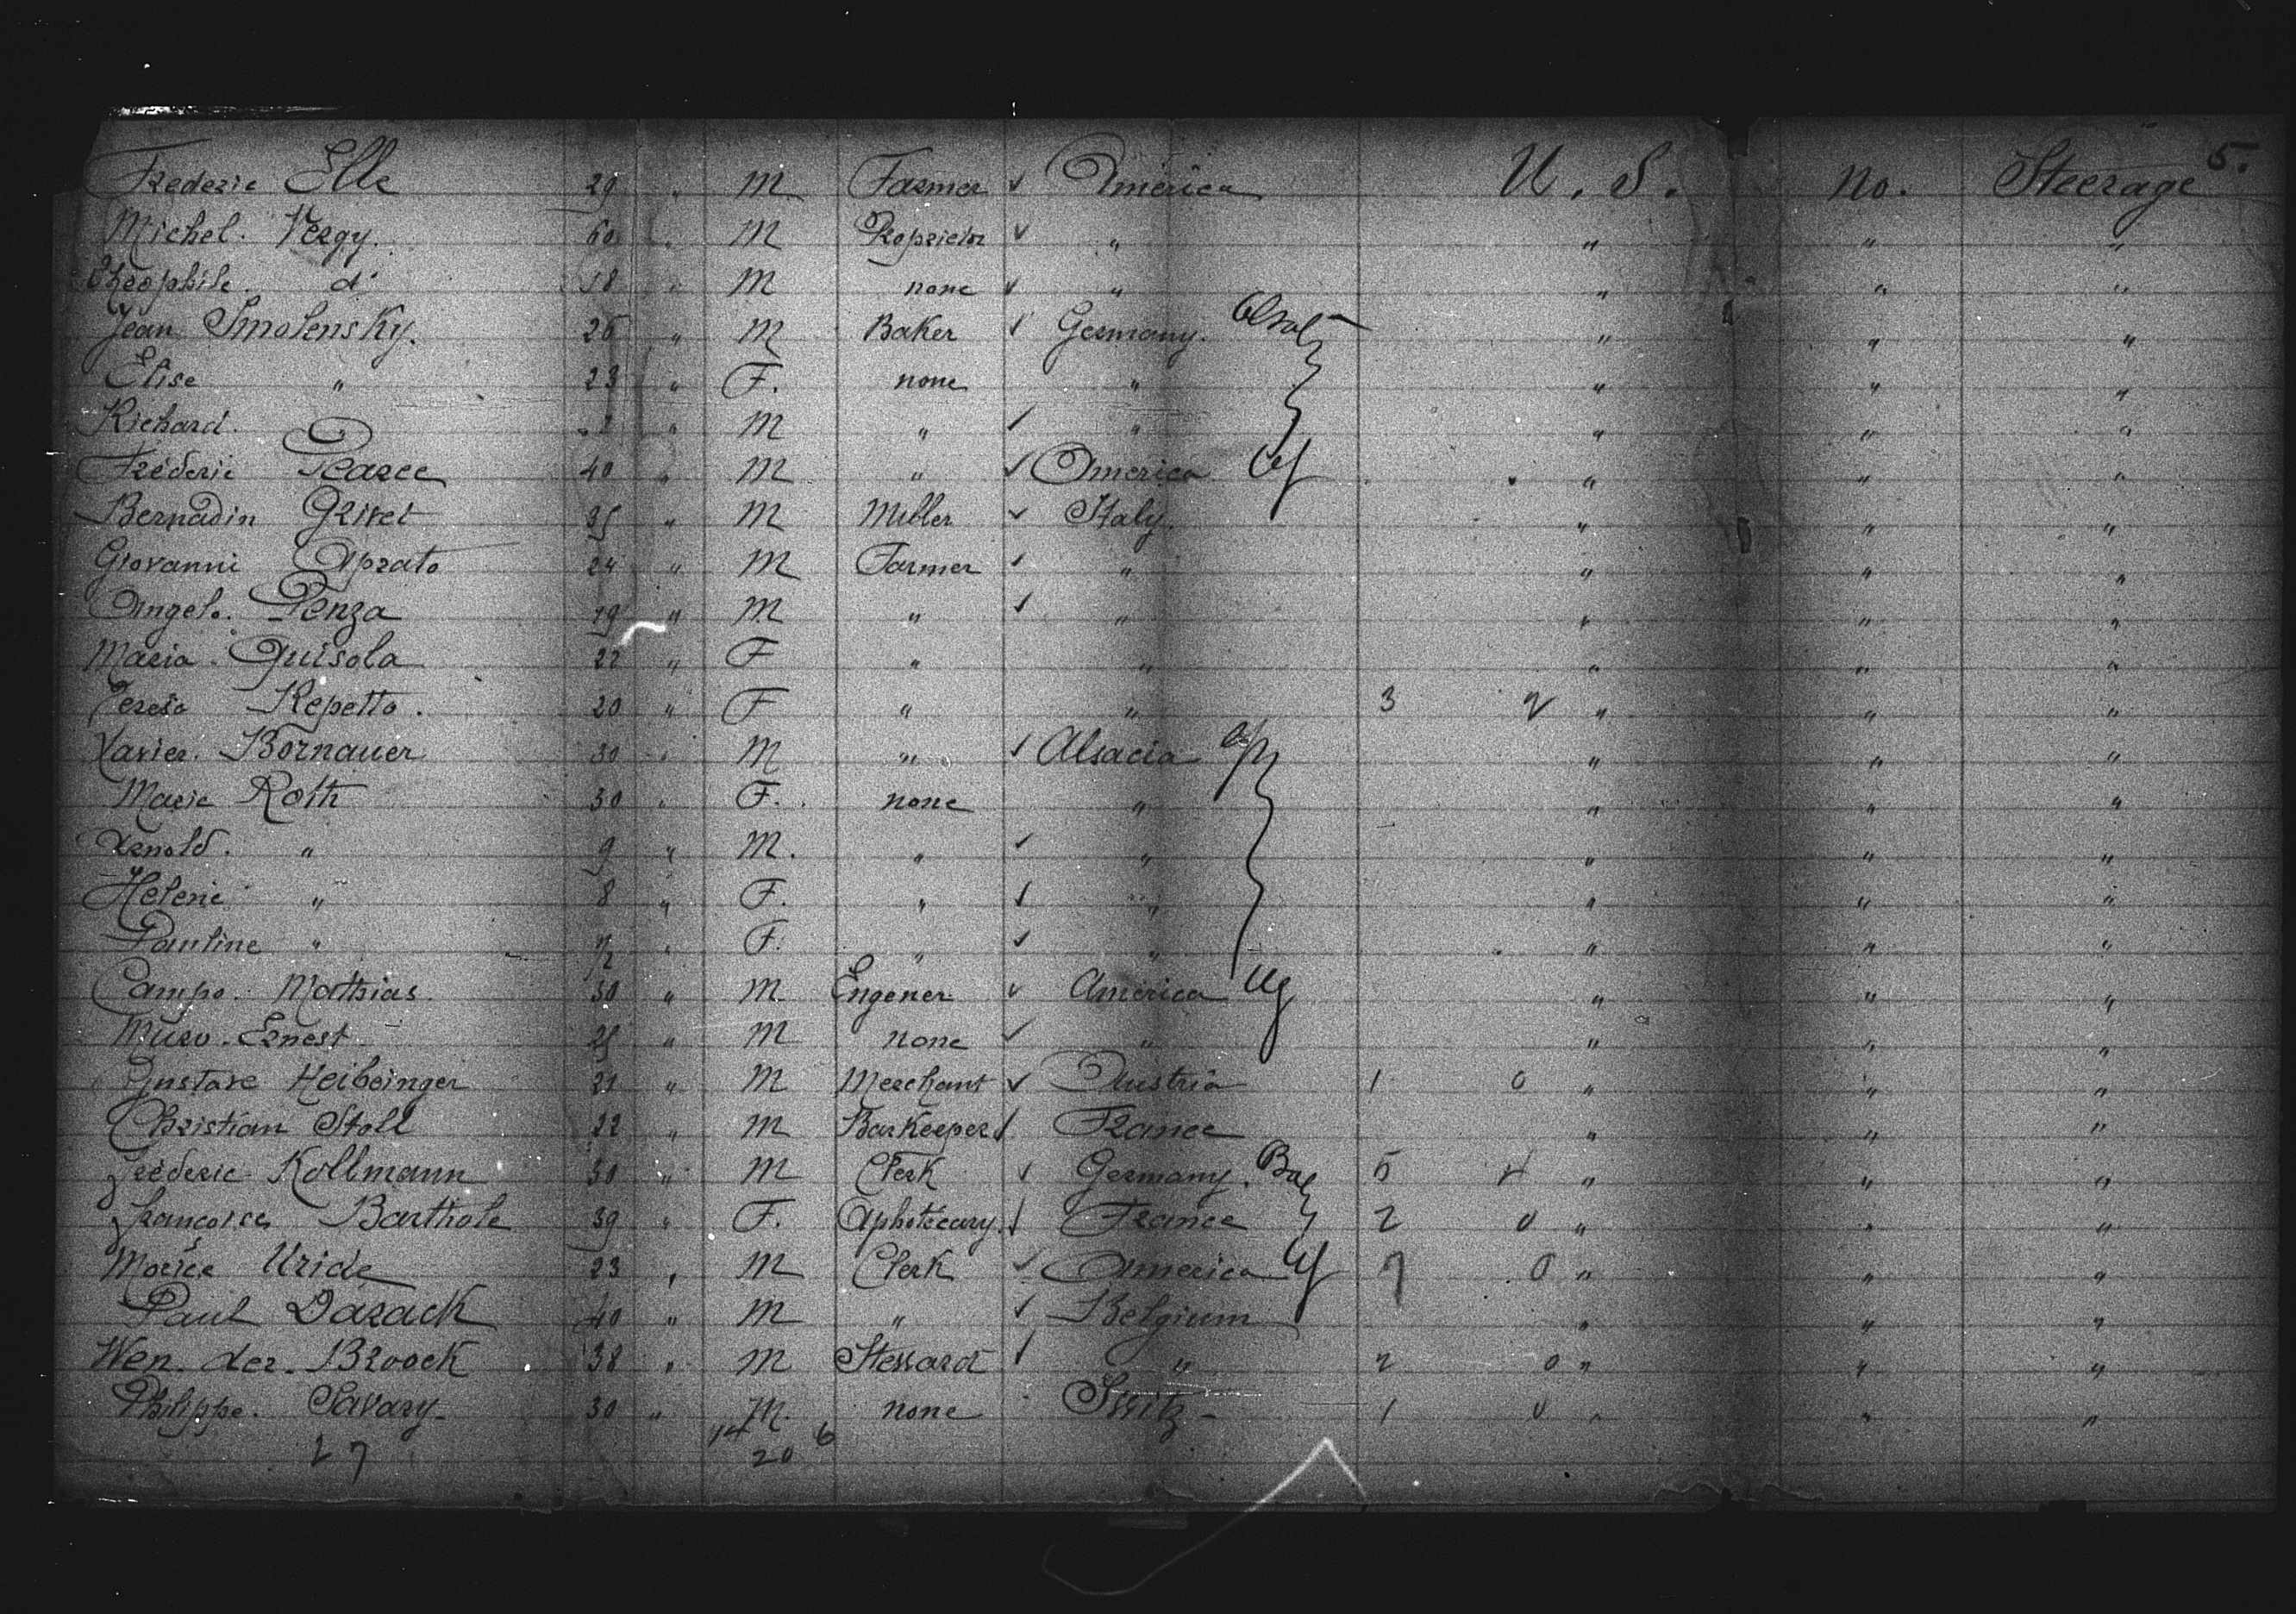 5.
Frederic Elle 29 " M Farmer ✓ America U. S. no. Steerage
Michel. Vergy. 60 " M Proprietor ✓ " " " "
Theophile. d° 18 " M none ✓ " " " "
Jean Smolensky. 26 " M Baker ✓ Germany. " " "
Elise " 23 " F. none " " " "
Richard. " 2 " M " ✓ " " " "
Fréderic Pearce 40 " M " ✓ America " " "
Bernadin Grivet 35 " M Miller ✓ Italy. " " "
Giovanni Aprato 24 " M Farmer ✓ " " " "
Angelo. Penza 19 " M " ✓ " " " "
Maria Guisola 22 " F " " " " "
Teresa Repetto. 20 " F " " 3 2 " " "
Xavier. Bornauer 30 " M " ✓ Alsacia " " "
Marie Roth 30 " F. none " " " "
Arnold. " 9 " M. " ✓ " " " "
Helene " 8 " F. " ✓ " " " "
Pauline " " F. " ✓ " " " "
Campo. Mathias 30 " M. Engener ✓ America " " "
Muro. Ernest 25 " M none ✓ " " " "
Gustave Heibeinger 21 " M Merchant ✓ Austria 1 0 " " "
Christian Stoll 22 " M Barkeeper ✓ France " " "
Fréderic Kollmann 30 " M Clerk ✓ Germany. 5 " " "
Françoises Barthole 39 " F. Aphotécary. ✓ France 2 0 " " "
Moríce Uride 23 " M Clerk ✓ America 7 0 " " "
Paul Darack 40 " M " ✓ Belgium " " "
Wen. der. Broock 38 " M Stessard ✓ " 2 0 " " "
Philippe. Savary 30 " M. none Switz - 1 0 " " "
27 14 6
20